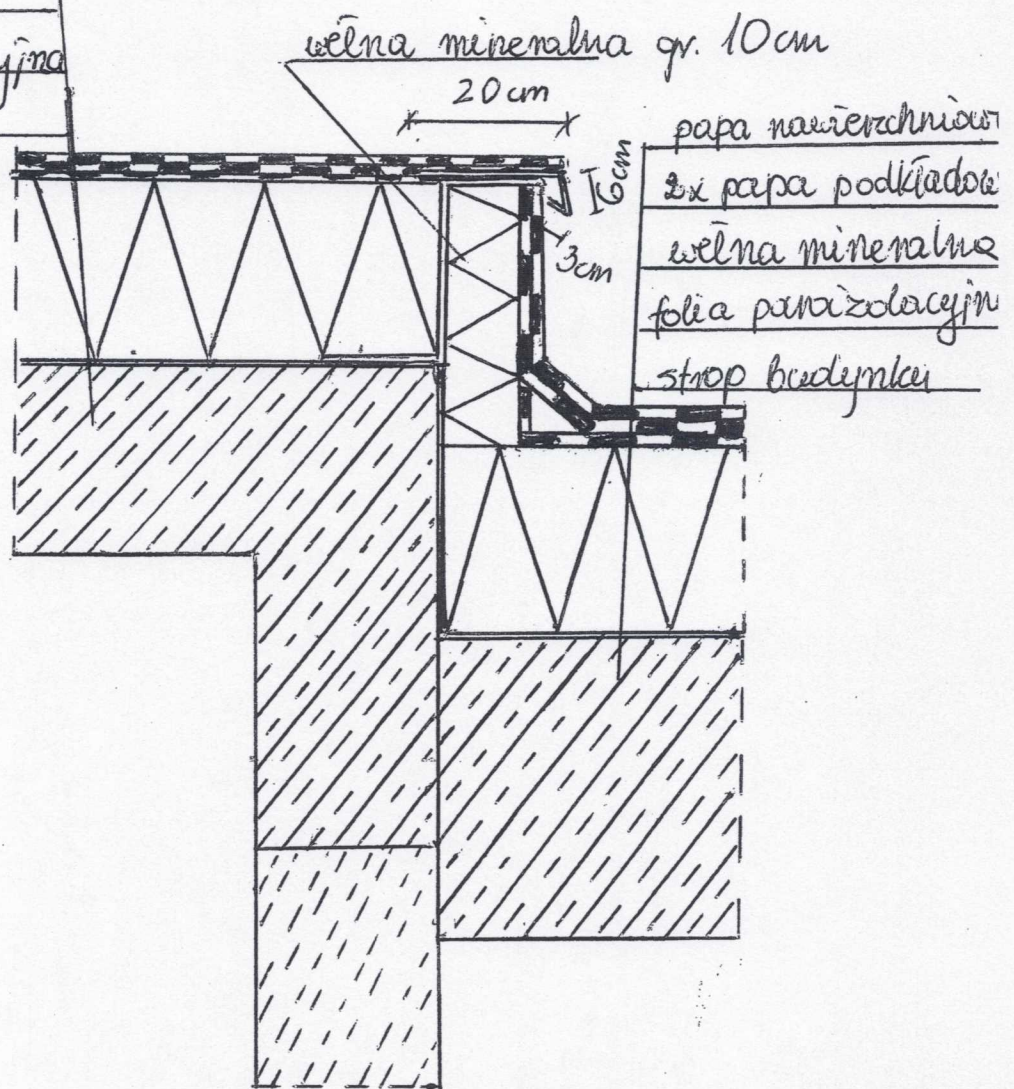 yjna
wełna mineralna gr. 10cm
20cm
6cm
3cm
papa nawierzchniow
2x papa podkładow
wełna mineralna
folia paroizolacyjn
strop budynku